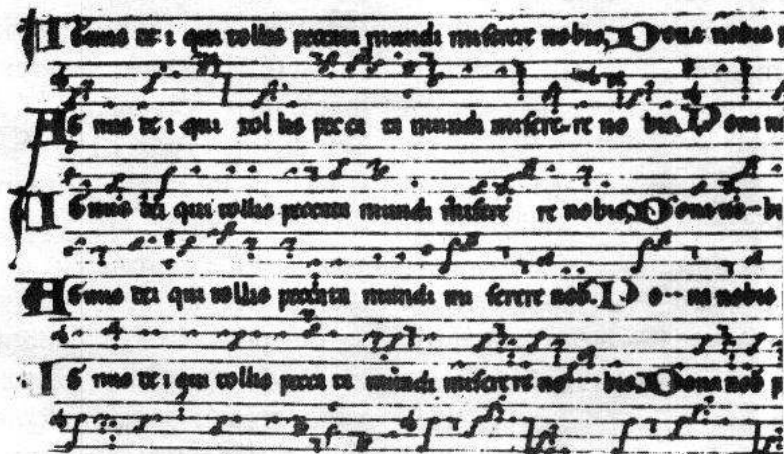 Agnus dei qui tollis peccata mundi miserere nobis. Dona nobis p
Ag nus de i qui tol lis pec ca ta mundi misere-re no bis. Dona no
Agnus dei qui tollis peccata mundi misere re nobis. Dona no--bi
Agnus dei qui tollis peccata mundi mi serere nob. Do--na nobis
Ag nus de i qui tollis pecca ta mundi miserere no----bis. Dona nob p